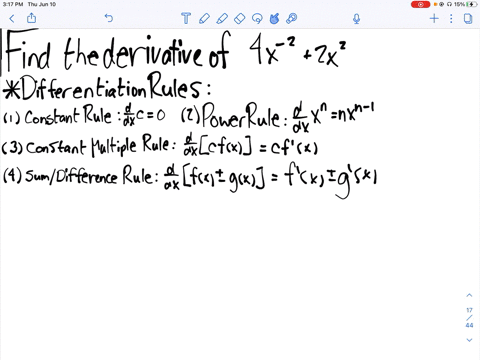 3:17 PM Thu Jun 10
15%
Find the derivative of 4x⁻² + 2x²
*Differentiation Rules:
(1) Constant Rule: d/dx c = 0 (2) Power Rule: d/dx xⁿ = nxⁿ⁻¹
(3) Constant Multiple Rule: d/dx [cf(x)] = cf'(x)
(4) Sum/Difference Rule: d/dx [f(x) ± g(x)] = f'(x) ± g'(x)
17
/
44